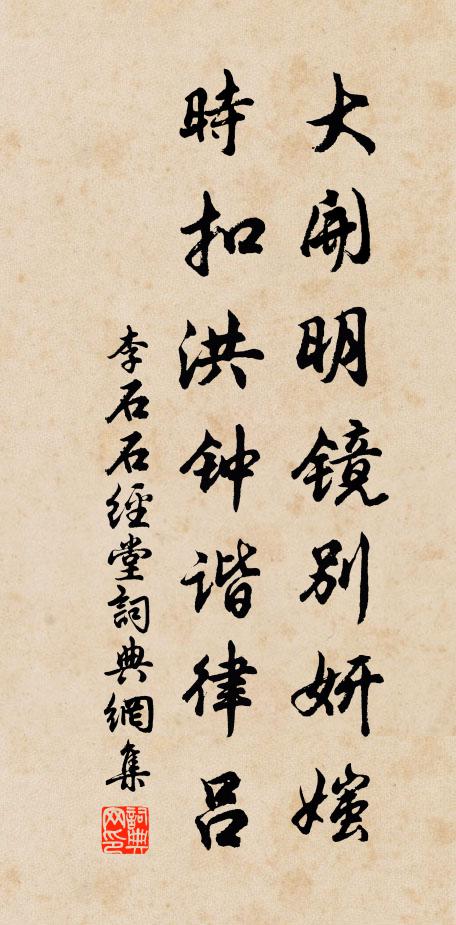 大開明镜别妍媸
時扣洪钟谐律吕
李石石經堂詞典網集
詞典网印